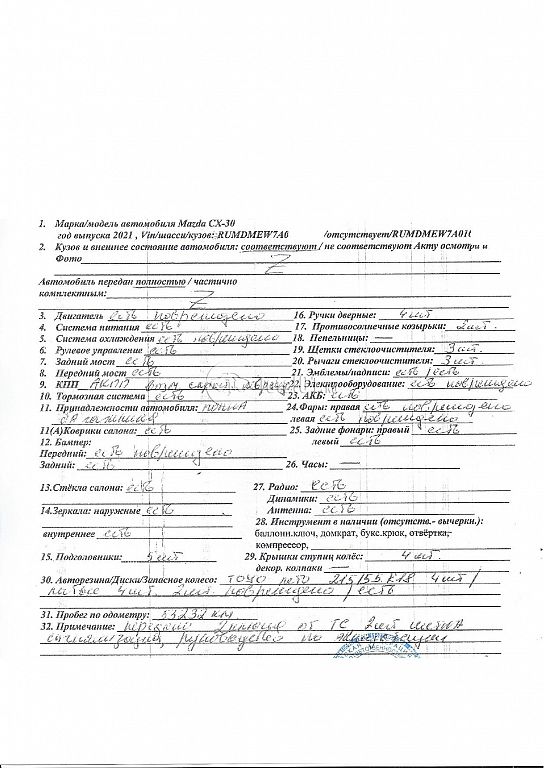 1. Марка/модель автомобиля Mazda CX-30
год выпуска 2021 , Vin/шасси/кузов: RUMDMEW7A0 /отсутствует/RUMDMEW7A01
2. Кузов и внешнее состояние автомобиля: соответствуют / не соответствуют Акту осмотри и
Фото
Автомобиль передан полностью / частично
комплектным:
3. Двигатель есть повреждено 16. Ручки дверные: 4 шт
4. Система питания есть 17. Противосолнечные козырьки: 2шт.
5. Система охлаждения есть повреждено 18. Пепельницы: —
6. Рулевое управление есть 19. Щетки стеклоочистителя: 3 шт.
7. Задний мост есть 20. Рычаги стеклоочистителя: 3 шт.
8. Передний мост есть 21. Эмблемы/надписи: есть / есть
9. КПП АКПП 22. Электрооборудование: есть повреждено
10. Тормозная система есть 23. АКБ: есть
11. Принадлежности автомобиля: 24.Фары: правая есть повреждено
левая есть повреждено
11(А)Коврики салона: есть 25. Задние фонари: правый есть
12. Бампер: левый есть
Передний: есть повреждено
Задний: есть 26. Часы: —
13.Стёкла салона: есть 27. Радио: есть
Динамики: есть
14.Зеркала: наружные есть Антенна: есть
28. Инструмент в наличии (отсутств.- вычеркн.):
внутреннее есть баллонн.ключ, домкрат, букс.крюк, отвёртка,
компрессор,
15. Подголовники: 5 шт 29. Крышки ступиц колёс: 4 шт.
декор. колпаки —
30. Авторезина/Диски/Запасное колесо: 215/55 R18 4 шт /
литые 4 шт. 2 шт. повреждено / есть
31. Пробег по одометру: 33232 км
32. Примечание: от ТС 2 шт
сигнализация, руководство по эксплуатации